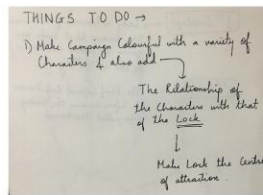 THINGS TO DO →
1) Make Campaign Colourful with a variety of
Characters & also add
The Relationship of
the Characters with that
of the Lock
Make Lock the Centre
of attraction.